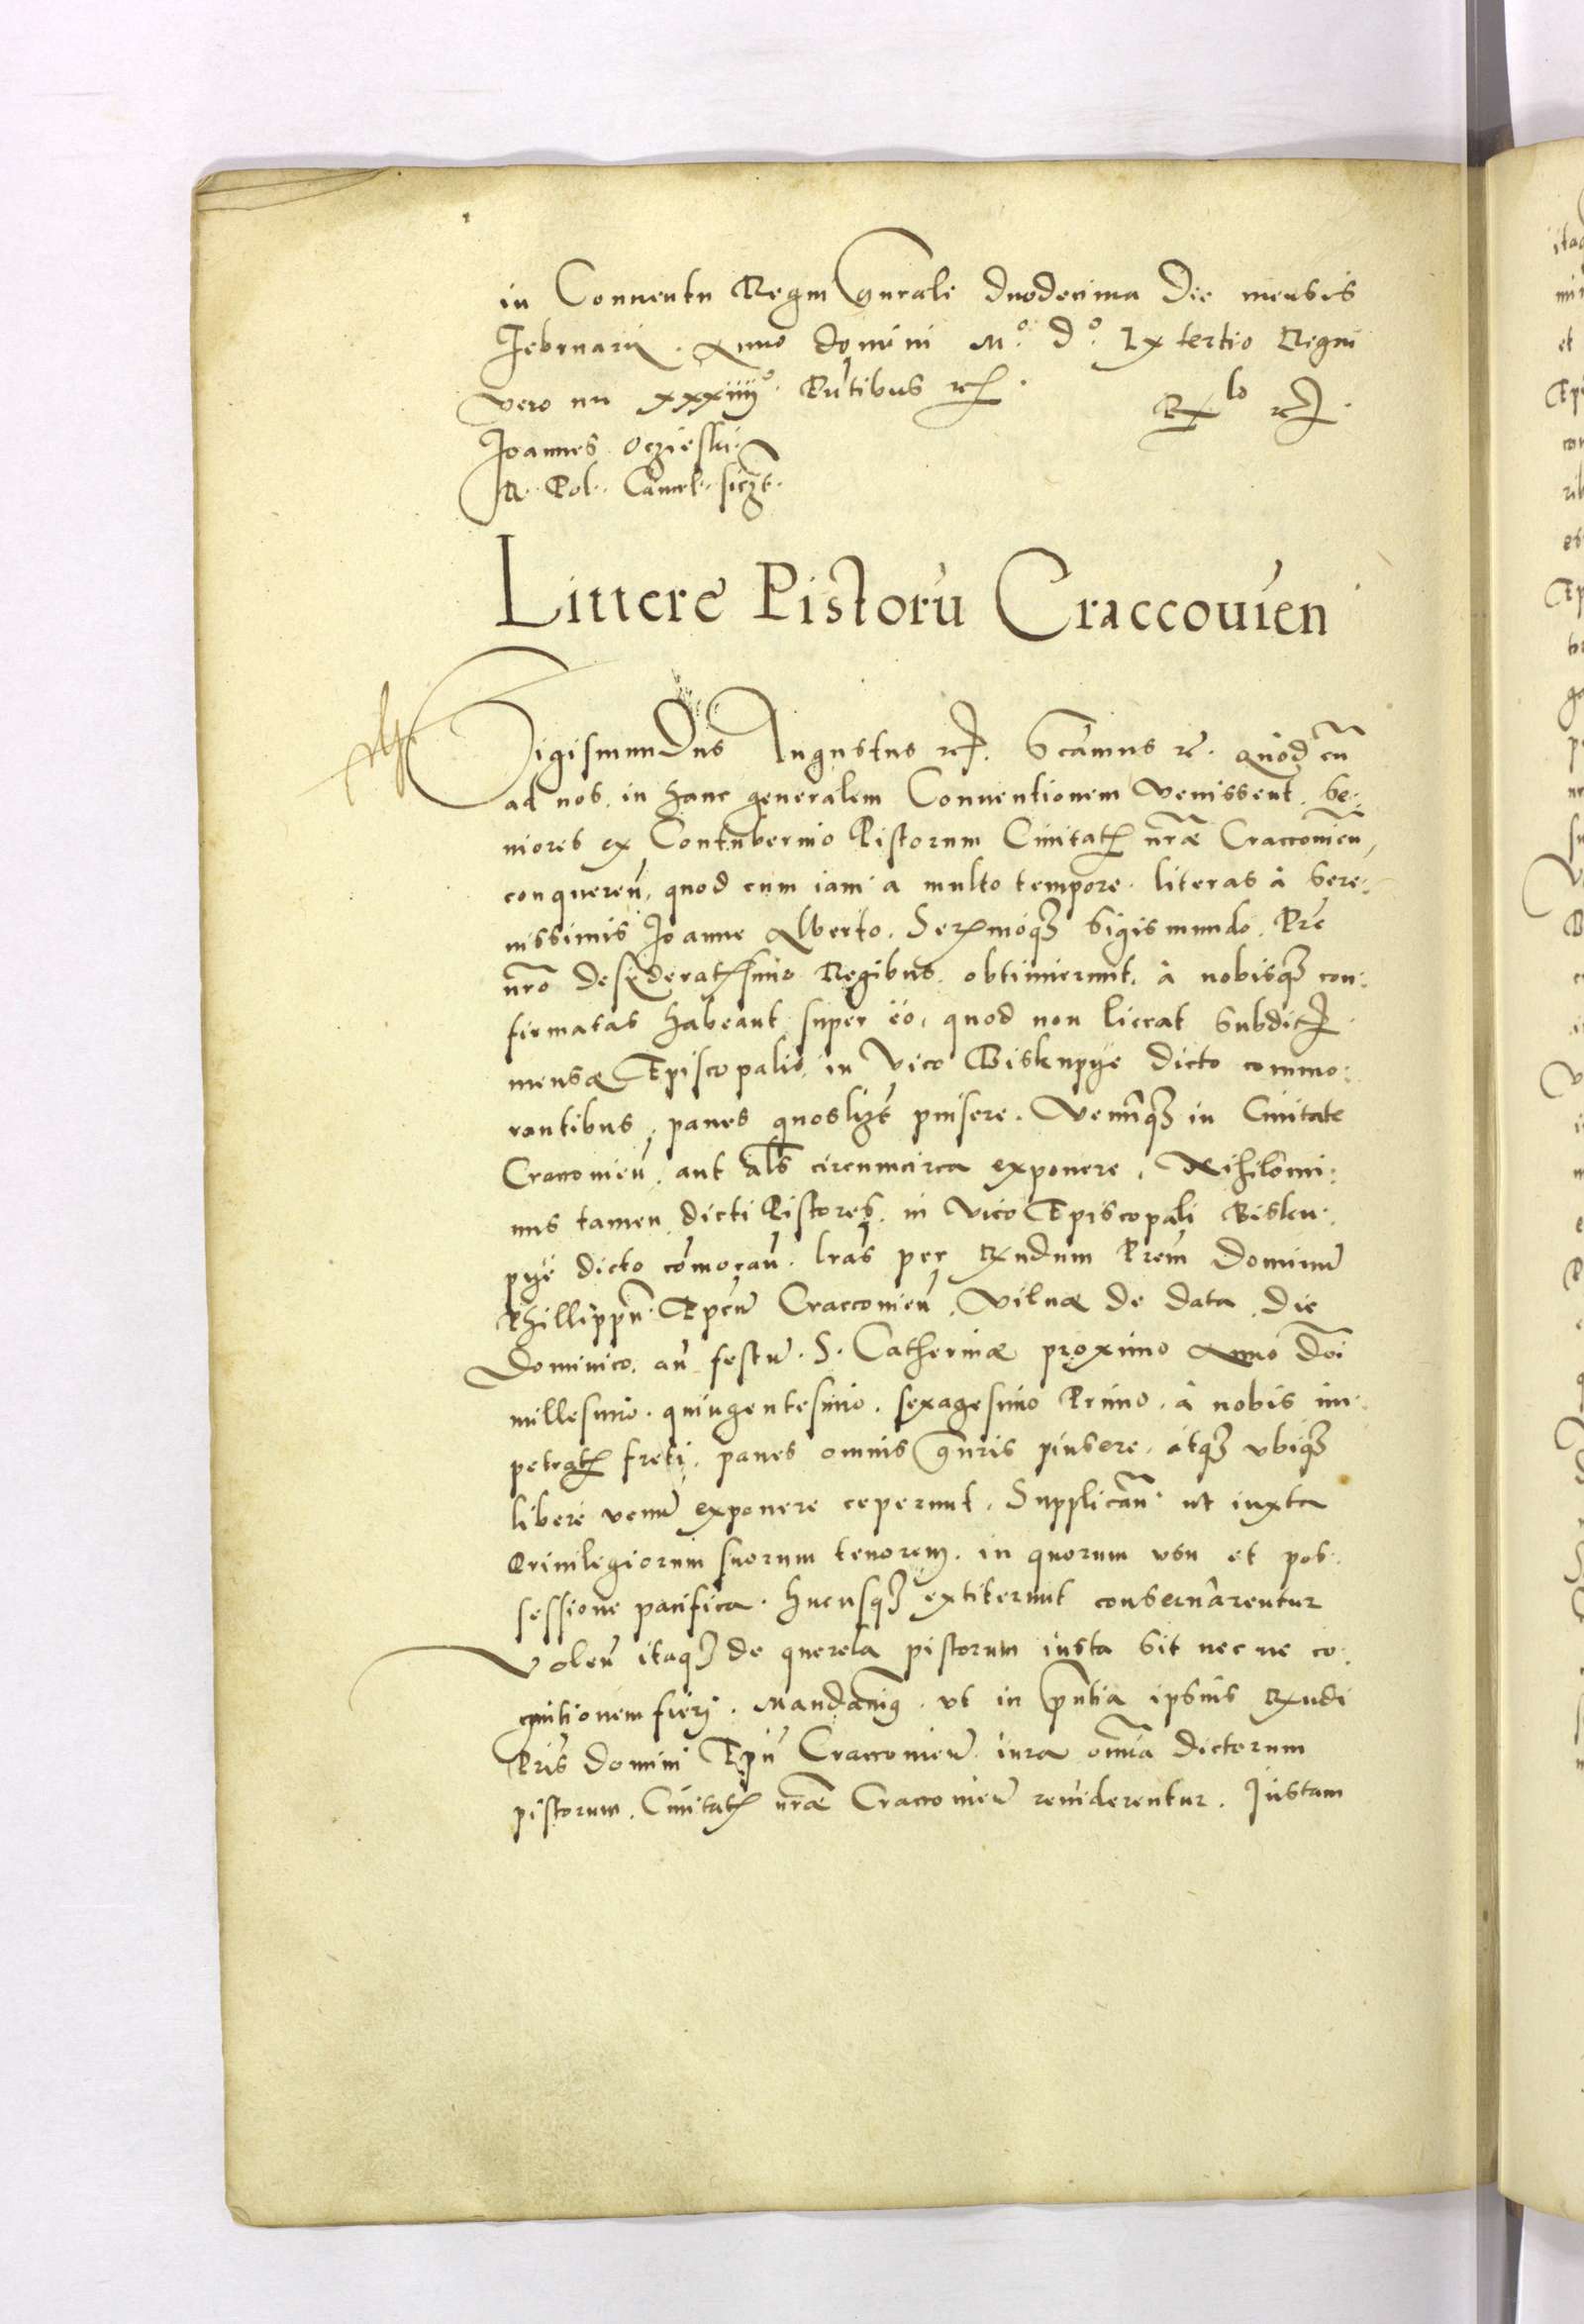 in Conuentu Regni Gnrali duodecima Die mensis
Februarij. Anno domini M.º D.º Lx tertio Regni
vero nri xxxiiijº. Pntibus etc.
Rlo etc.
Joannes Oczieski
R. Pol. Cancel. sscrpt.
Littere Pistorũ Craccouien
Sigismundus Augustus etc. Scamus etc. quod cũ
ad nos in hanc generalem Conuentionem venissent se:
niores ex Contubernio Pistorum Ciuitatis nrãe Craccouien̄,
conqueren̄, quod cum iam a multo tempore literas à sere:
nissimis Joanne Alberto, Sermoqʒ Sigismundo, Pre
nrõ desideratissimo Regibus obtinuerunt, à nobisqʒ con:
firmatas habeant super eo, quod non liceat subditis
mensæ Episcopalis, in vico Biskupye dicto commo:
rantibus, panes quoslibet pinsere. Venunqʒ in Ciuitate
Craccouien̄, aut als circumcirca exponere, Nihilomi:
nus tamen dicti Pistores, in vico Episcopali Bisku:
pye dicto cõmoran̄. lras per Rndum Prem Dominũ
Phillippũ Epcũ Craccouien̄, Vilnæ de data, die
Dominico, an̄ festũ S. Catherinæ proximo Anno Dni
millesimo quingentesimo, sexagesimo Primo, à nobis im:
petratis freti, panes omnis gnris pinsere, atqʒ vbiqʒ
liberè venũ exponere ceperunt, Supplican̄ ut iuxta
Priuilegiorum suorum tenorem, in quorum vsu et pos:
sessione pacifica hucusqʒ extiterunt conseruarentur
Volen̄ itaqʒ de querela pistorum iusta sit nec ne co:
gnitionem fieri, Mandamus vt in pntia ipsius Rndi
Pris domini Epi Craccouien̄ iura omnia dictorum
pistorum Ciuitatis nrãe Craccouien̄ reuiderentur. Justam